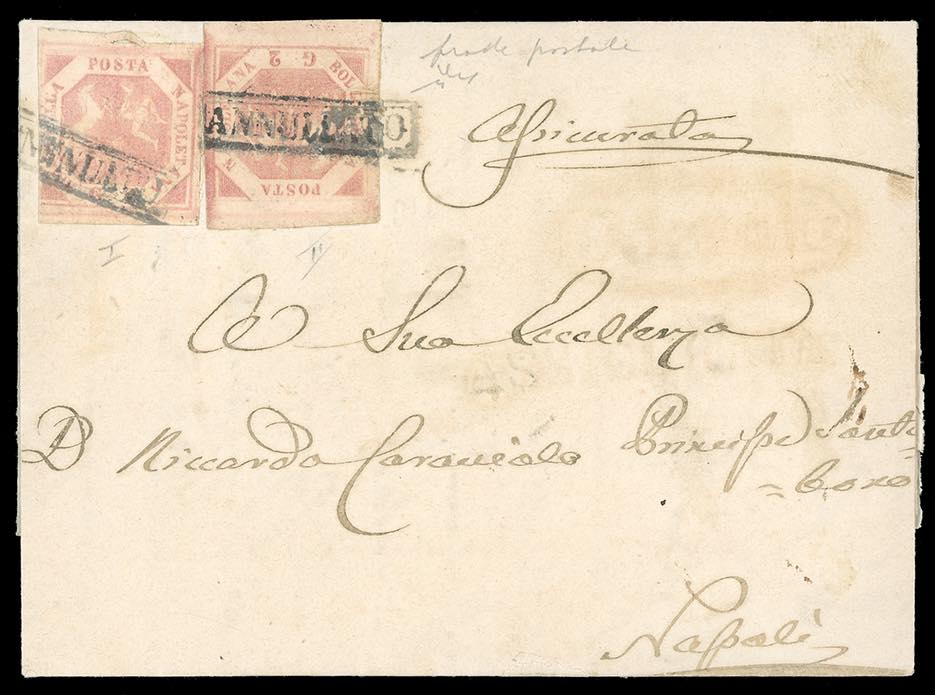 POSTA NAPOLETANA
ANNULLATO
G 2
BOLLO
POSTA
ANNULLATO
frode postale
Assicurata
I
II
A Sua Eccellenza
D Riccardo Caracciolo Principe Santo
= bono
Napoli